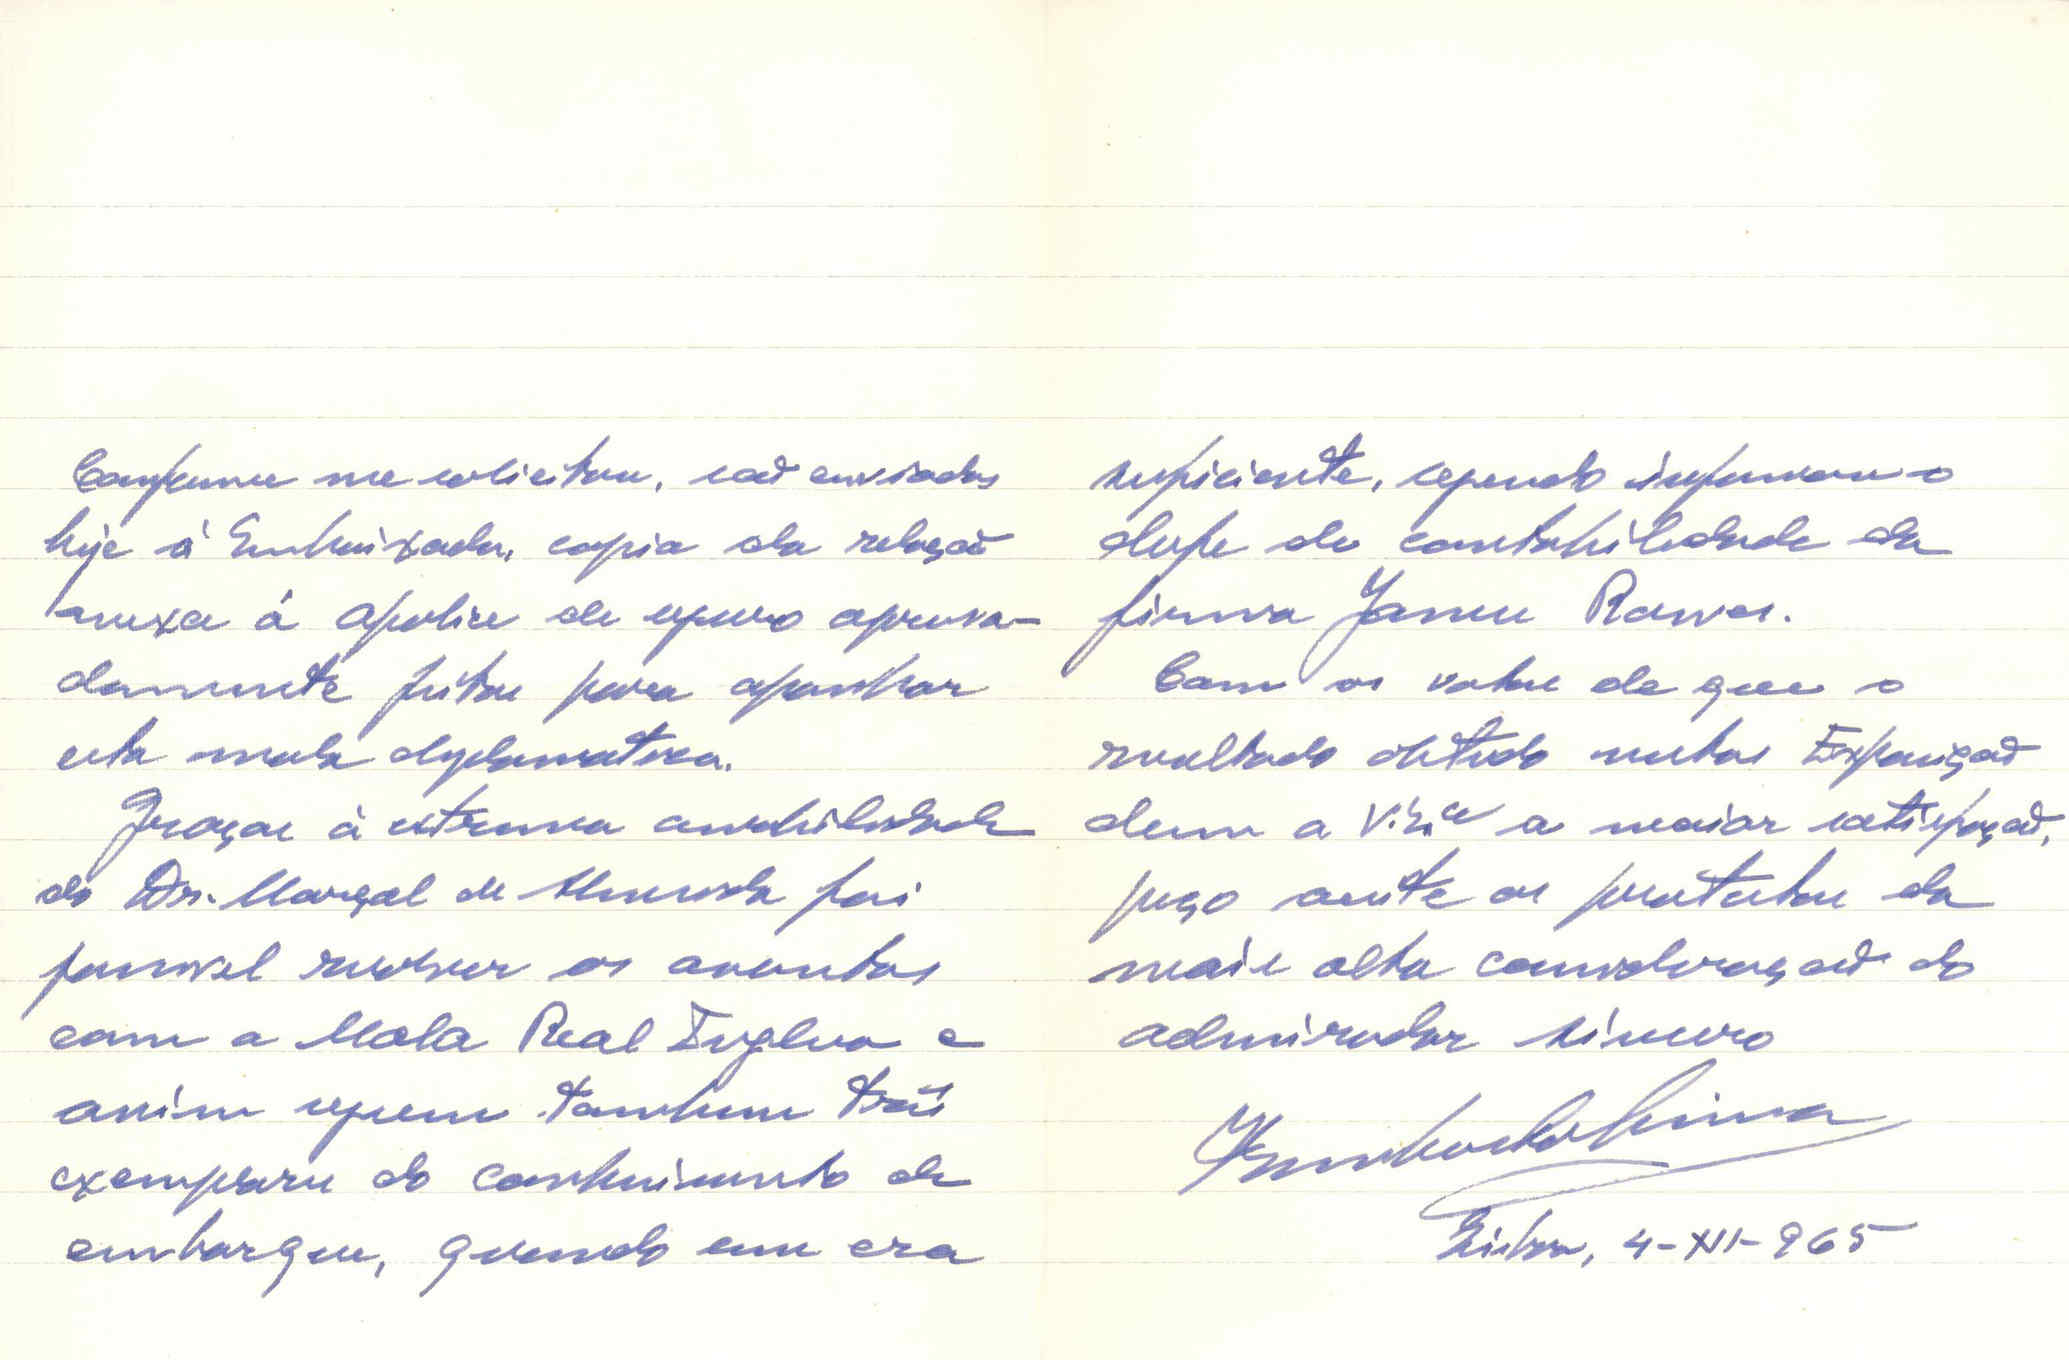 Conforme me solicitou, são enviados
hoje á Embaixada, copia da relação
anexa á apolice de seguro apressa-
damente feitas para apanhar
esta mala diplomatica.
Graças á extrema amabilidade
do Dr. Marçal de Almeida foi
possivel resolver os assuntos
com a Mala Real Inglesa e
assim seguem tambem três
exemplares do conhecimento de
embarque, quando um era
suficiente, segundo informou o
chefe de contabilidade da
firma James Rawes.
Com os votos de que o
resultado obtido nestas Exposição
deem a V. Exª a maior satisfação,
peço aceite os protestos da
mais alta consideração do
admirador sincero
Lisboa, 4-XI-965